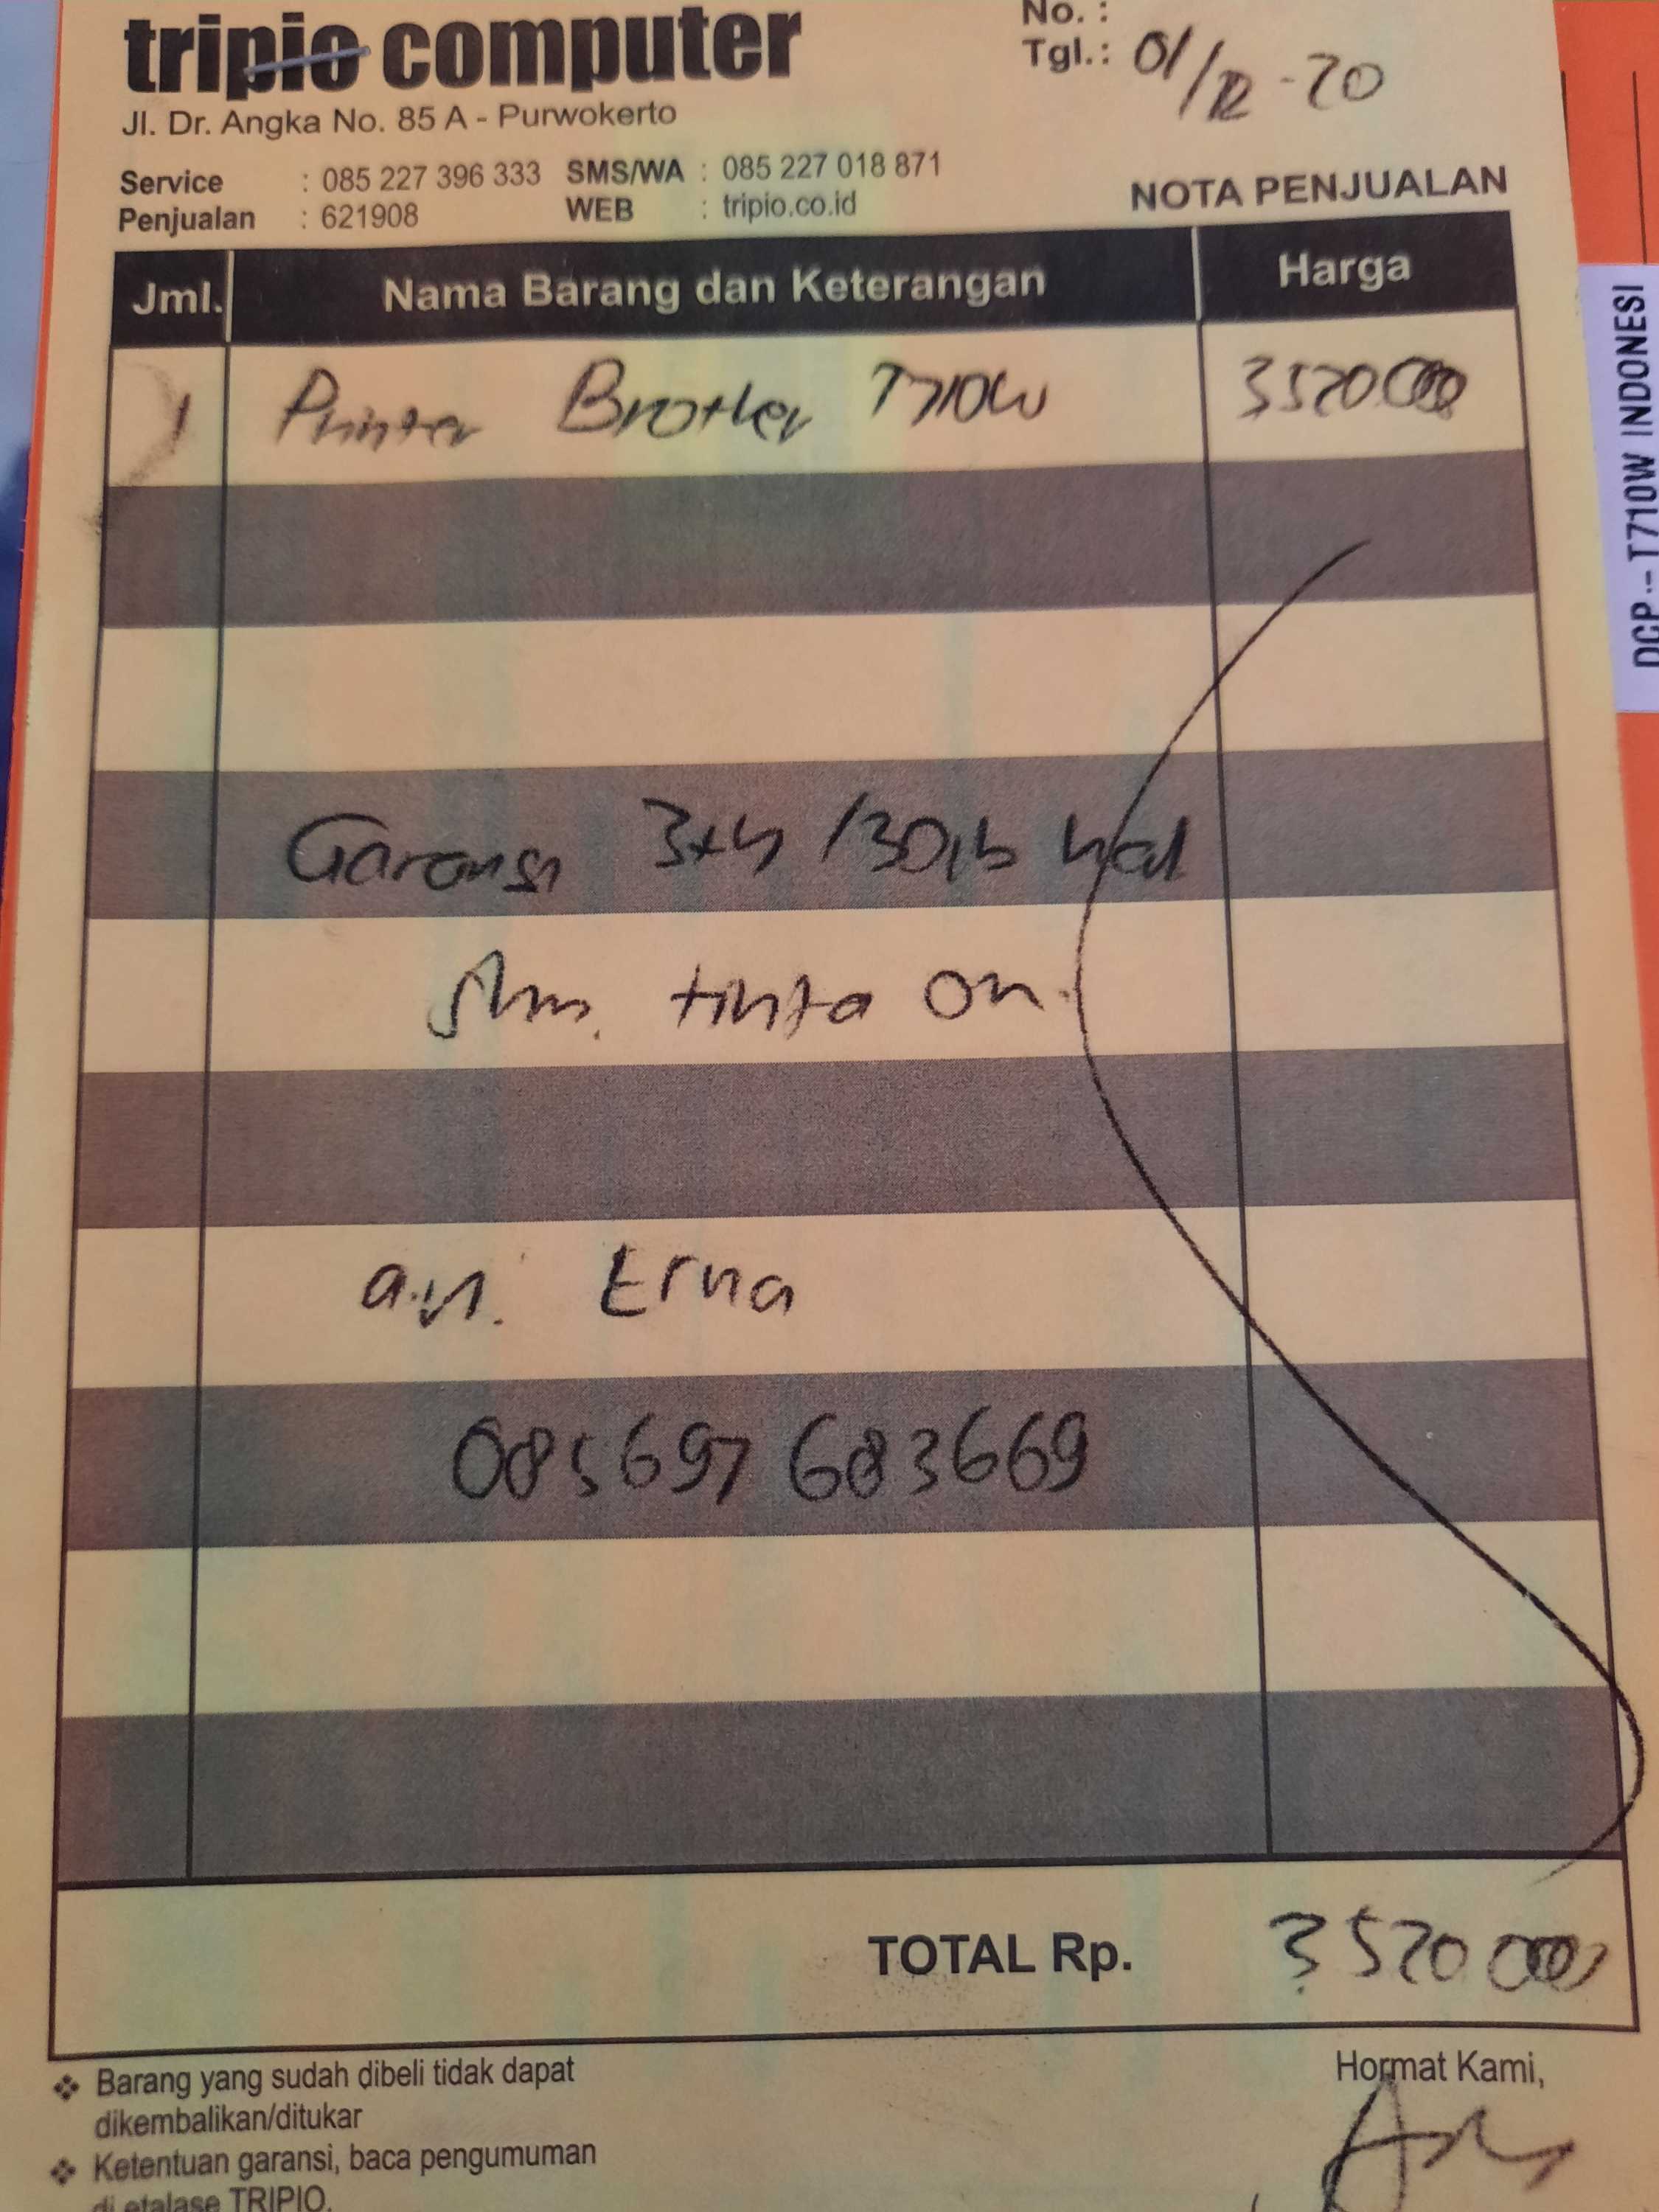 tripio computer
No. :
Tgl.: 01/12-20
Jl. Dr. Angka No. 85 A - Purwokerto
Service : 085 227 396 333 SMS/WA : 085 227 018 871
Penjualan : 621908 WEB : tripio.co.id
NOTA PENJUALAN
Jml. Nama Barang dan Keterangan Harga
1 Printer Brother T710W 3520000
Garansi 3th /30rb hal
tinta ori
a.n. Erna
085697 683669
TOTAL Rp. 3520000
Barang yang sudah dibeli tidak dapat
dikembalikan/ditukar
Ketentuan garansi, baca pengumuman
di etalase TRIPIO.
Hormat Kami,
DCP--T710W INDONESI